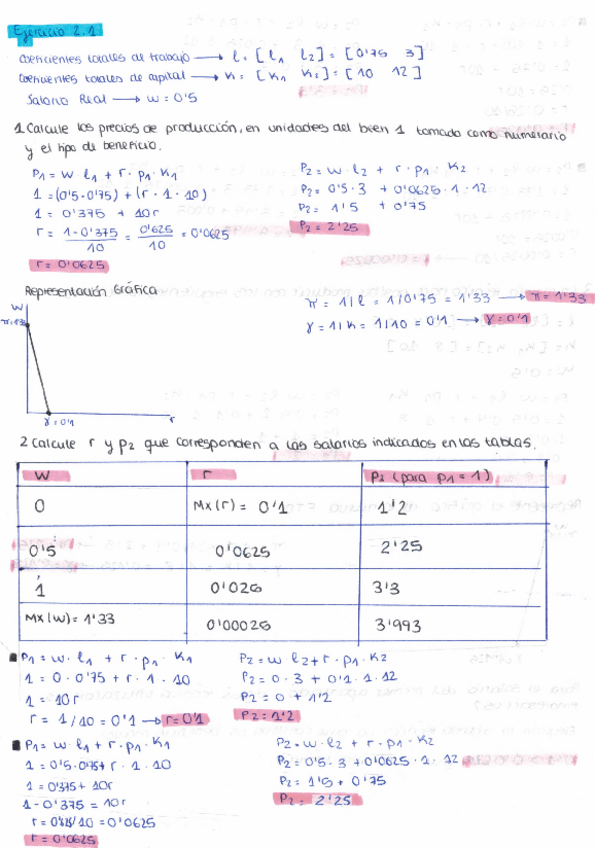 Ejercicio 2.1
Coeficientes totales de trabajo ⟶ l = [l1 l2] = [0'75 3]
Coeficientes totales de capital ⟶ K = [K1 K2] = [10 12]
Salario Real ⟶ w = 0'5
1 Calcule los precios de producción, en unidades del bien 1 tomado como numerario
y el tipo de beneficio.
P1 = w · l1 + r · p1 · K1
1 = (0'5 · 0'75) + (r · 1 · 10)
1 = 0'375 + 10r
r = 1 - 0'375 / 10 = 0'625 / 10 = 0'0625
r = 0'0625
P2 = w · l2 + r · p1 · K2
P2 = 0'5 · 3 + 0'0625 · 1 · 12
P2 = 1'5 + 0'75
P2 = 2'25
Representación Gráfica
w
π = 1'33
γ = 0'1
r
π = 1/l = 1/0'75 = 1'33 ⟶ π = 1'33
γ = 1/K = 1/10 = 0'1 ⟶ γ = 0'1
2 Calcule r y p2 que corresponden a los salarios indicados en las tablas.
w r P2 (para p1 = 1)
0 Mx(r) = 0'1 1'2
0'5 0'0625 2'25
1 0'026 3'3
Mx(w) = 1'33 0'00026 3'993
P1 = w · l1 + r · p1 · K1
1 = 0 · 0'75 + r · 1 · 10
1 = 10r
r = 1/10 = 0'1 ⟶ r = 0'1
P2 = w · l2 + r · p1 · K2
P2 = 0 · 3 + 0'1 · 1 · 12
P2 = 0 + 1'2
P2 = 1'2
P1 = w · l1 + r · p1 · K1
1 = 0'5 · 0'75 + r · 1 · 10
1 = 0'375 + 10r
1 - 0'375 = 10r
r = 0'625/10 = 0'0625
r = 0'0625
P2 = w · l2 + r · p1 · K2
P2 = 0'5 · 3 + 0'0625 · 1 · 12
P2 = 1'5 + 0'75
P2 = 2'25